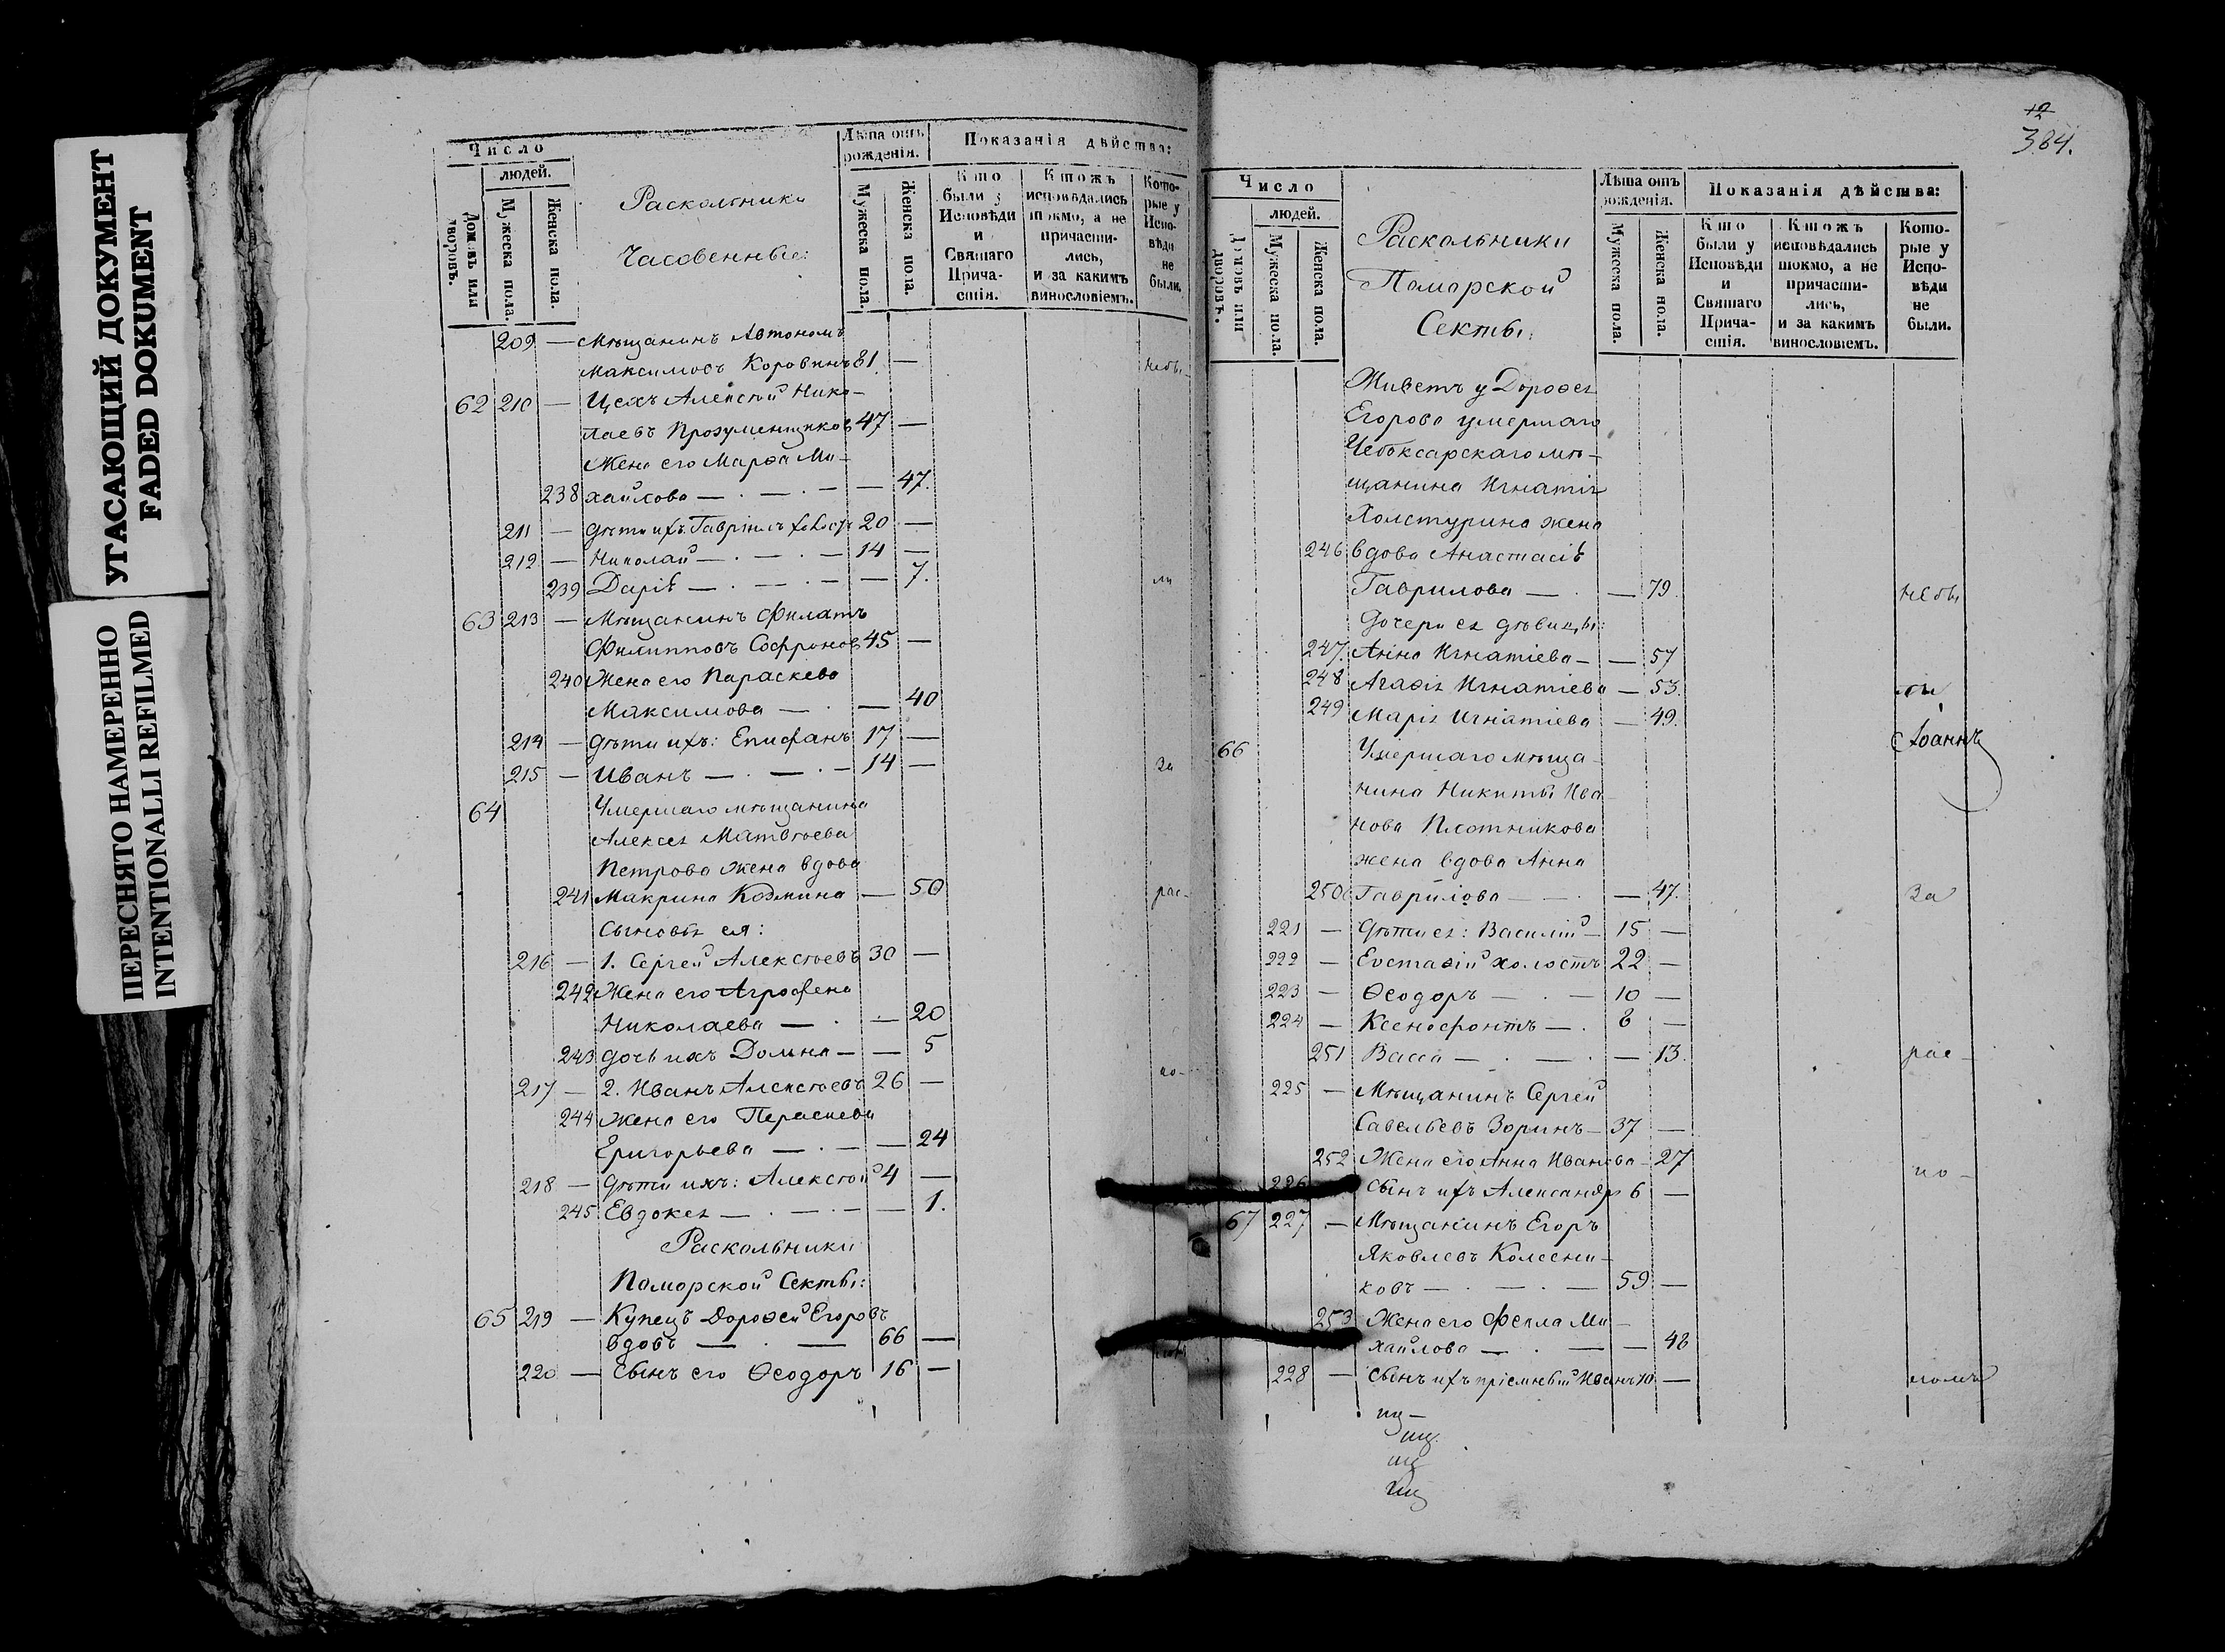 УГАСАЮЩИЙ ДОКУМЕНТ
FADED DOKUMENT
ПЕРЕСНЯТО НАМЕРЕННО
INTENTIONALLI REFILMED
Число
людей.
Домовъ или дворовъ.
Мужеска пола.
Женска пола.
Раскольники
Часовенные:
Лѣта отъ рожденія.
Мужеска пола.
Женска пола.
Показанія дѣйства:
Кто были у Исповѣди и Святаго Прича-стія.
Ктожъ исповѣдались токмо, а не причасти-лись, и за какимъ винословіемъ.
Кото-рые у Испо-вѣди не были.
209 — Мѣщанинъ Автономъ
Максимовъ Коровинъ 81. — небы-
62 210 — Цехъ Алексѣй Нико-
лаевъ Прозуменщиковъ 47 —
Жена его Марѳа Ми-
238 хайлова — . — . — — 47.
211 — Дѣти ихъ: Гавріилъ холостъ 20 —
212 — Николай — . — . — 14 —
239 Дарія — . — . — — 7. ли
63 213 — Мѣщанинъ Филатъ
Филипповъ Софроновъ 45 —
240 Жена его Параскева
Максимова — . — 40
214 — Дѣти ихъ: Епифанъ 17 —
215 — Иванъ — . — . — 14 — За
64 Умершаго мѣщанина
Алексея Матвѣева
Петрова жена вдова
241 Макрина Козмина — 50 рас-
Сыновья ея:
216 — 1. Сергей Алексѣевъ 30 —
242 Жена его Агрофена
Николаева — . — 20
243 Дочь ихъ Домна — — 5
217 — 2. Иванъ Алексѣевъ 26 — ко-
244 Жена его Параскева
Григорьева — . — — 24
218 — Дѣти ихъ: Алексѣй 4 —
245 Евдокея — . — . — — 1.
Раскольники
Поморской Секты:
65 219 — Купецъ Дороѳей Егоровъ
вдовъ — . — 66 —
220 — Сынъ его Ѳеодоръ 16 —
384.
Число
людей.
Домовъ или дворовъ.
Мужеска пола.
Женска пола.
Раскольники
Поморской
Секты:
Лѣта отъ рожденія.
Мужеска пола.
Женска пола.
Показанія дѣйства:
Кто были у Исповѣди и Святаго Прича-стія.
Ктожъ исповѣдались токмо, а не причасти-лись, и за какимъ винословіемъ.
Кото-рые у Испо-вѣди не были.
Живетъ у Дороѳея
Егорова умершаго
Чебоксарскаго мѣ-
щанина Игнатія
Холстурина жена
246 вдова Анастасія
Гаврилова — . — 79. небы
Дочери ея дѣвицы:
247. Анна Игнатіева — — 57
248 Агаѳія Игнатіева — 53. ли
249 Марія Игнатіева — 49.
Іоаннъ
66 Умершаго мѣща-
нина Никиты Ива-
нова Плотникова
жена вдова Анна
250 Гаврилова — . — 47. За
221 — Дѣти ея: Василій — 15 —
222 — Евстаѳій холостъ 22 —
223 — Ѳеодоръ — . — 10 —
224 — Ксенофонтъ — . 8 —
251 Васса — . — . — 13. рас-
225 — Мѣщанинъ Сергей
Савельевъ Зоринъ — 37 —
252 Жена его Анна Иванова — 27 ко-
226 Сынъ ихъ Александръ 6 —
67 227 — Мѣщанинъ Егоръ
Яковлевъ Колесни-
ковъ — . — . — 59 —
253 Жена его Фекла Ми-
хайлова — . — — 48
228 — Сынъ ихъ пріемный Иванъ 10 — ломъ